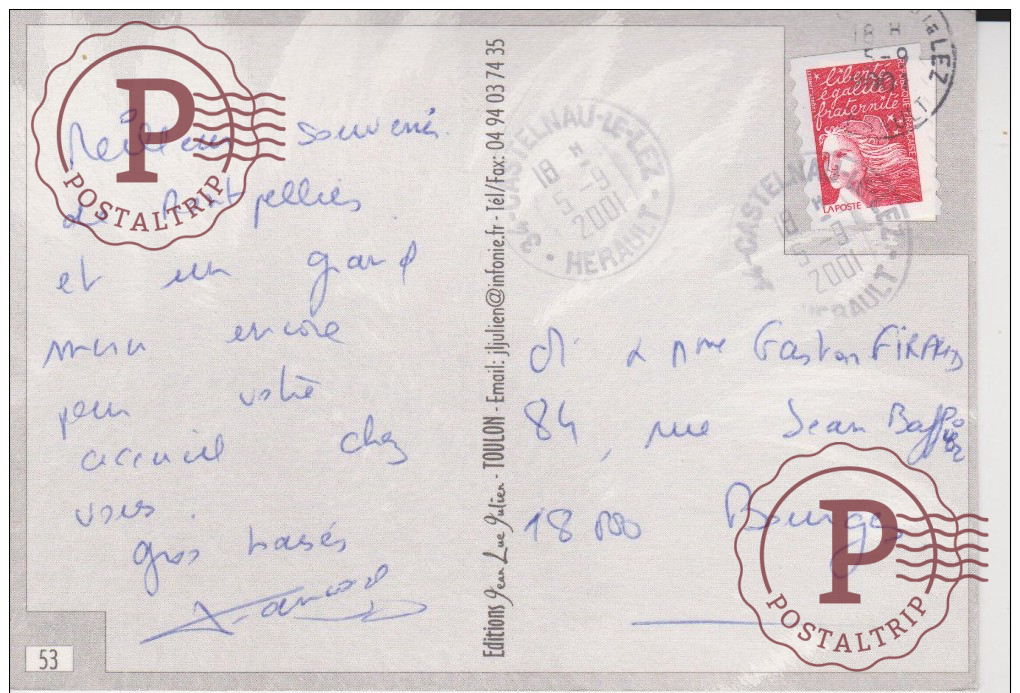 Meilleurs souvenirs
de Montpellier
et un grand
merci encore
pour votre
accueil chez
vous.
gros baisés
53
Editions Jean Luc Julien - TOULON - Email: jljulien@infonie.fr - Tél/Fax: 04 94 03 74 35
34-CASTELNAU-LE-LEZ
18 H
5-9
2001
HERAULT
liberté
égalité
fraternité
RÉPUBLIQUE FRANÇAISE
LA POSTE
34-CASTELNAU-LE-LEZ
18 H
5-9
2001
HERAULT
LEZ
18 H
Mme Gaston
84, rue Jean
18000 Bourges
P
POSTALTRIP
P
POSTALTRIP